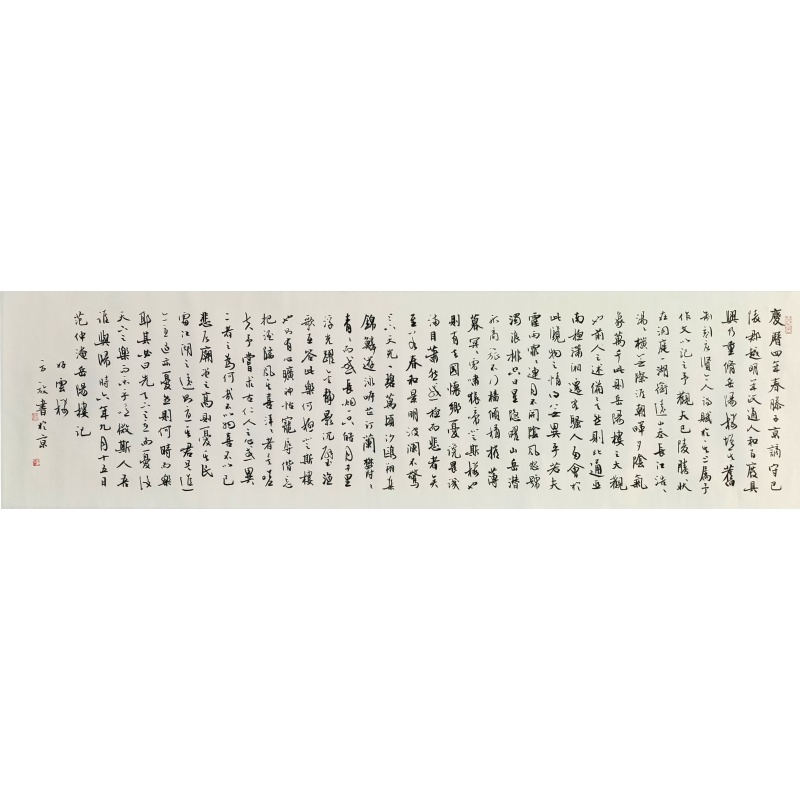 慶曆四年春滕子京謫守巴
陵郡越明年政通人和百廢具
興乃重脩岳陽樓增其舊
制刻唐賢今人詩賦於其上屬予
作文以記之予觀夫巴陵勝狀
在洞庭一湖銜遠山吞長江浩浩
湯湯橫無際涯朝暉夕陰氣
象萬千此則岳陽樓之大觀
也前人之述備矣然則北通巫
峽南極瀟湘遷客騷人多會於
此覽物之情得無異乎若夫
霪雨霏霏連月不開陰風怒號
濁浪排空日星隱曜山岳潛
形商旅不行檣傾楫摧薄
暮冥冥虎嘯猿啼登斯樓也
則有去國懷鄉憂讒畏譏
滿目蕭然感極而悲者矣
至若春和景明波瀾不驚
上下天光一碧萬頃沙鷗翔集
錦鱗游泳岸芷汀蘭郁郁
青青而或長煙一空皓月千里
浮光躍金靜影沉璧漁
歌互答此樂何極登斯樓
也則有心曠神怡寵辱偕忘
把酒臨風其喜洋洋者矣嗟
夫予嘗求古仁人之心或異
二者之為何哉不以物喜不以己
悲居廟堂之高則憂其民
處江湖之遠則憂其君是進
亦憂退亦憂然則何時而樂
耶其必曰先天下之憂而憂後
天下之樂而樂乎噫微斯人吾
誰與歸時六年九月十五日
范仲淹岳陽樓記
書於京